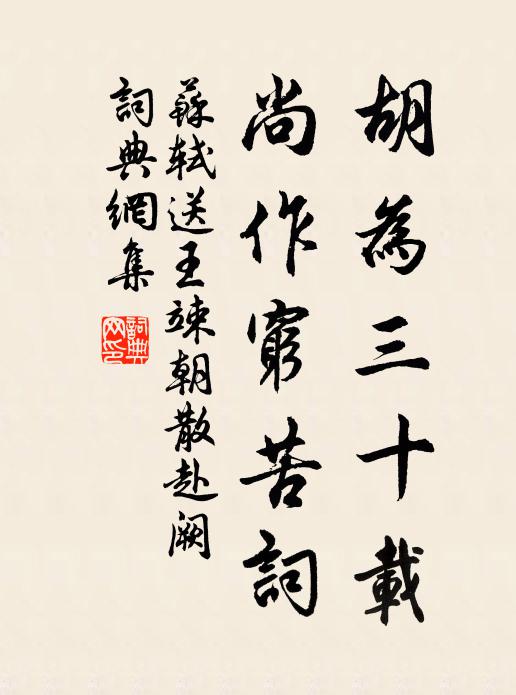 胡為三十載
尚作窮苦詞
蘇軾送王竦朝散赴闕
詞典網集
詞典
网印